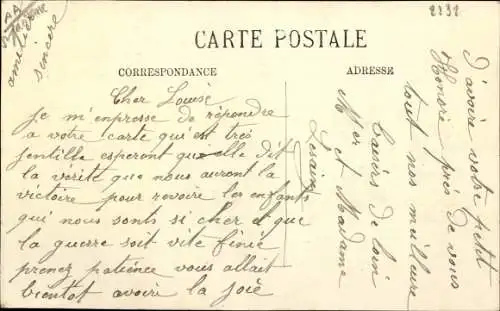 2232
CARTE POSTALE
CORRESPONDANCE
ADRESSE
Cher Louise
Je m'enpresse de répondre
a votre carte qui est très
jentille esperont quelle dit
la vérité que nous auront la
victoire pour revoire les enfants
qui nous sonts si cher et que
la guerre soit vite finie
prenez patiénce vous allait
bientot avoire la joie
D'avoire votre petit
Honoré près de vous
tout nos meilleure
baisers de loin
Mer et Madame
Lesain
amitié
sincere